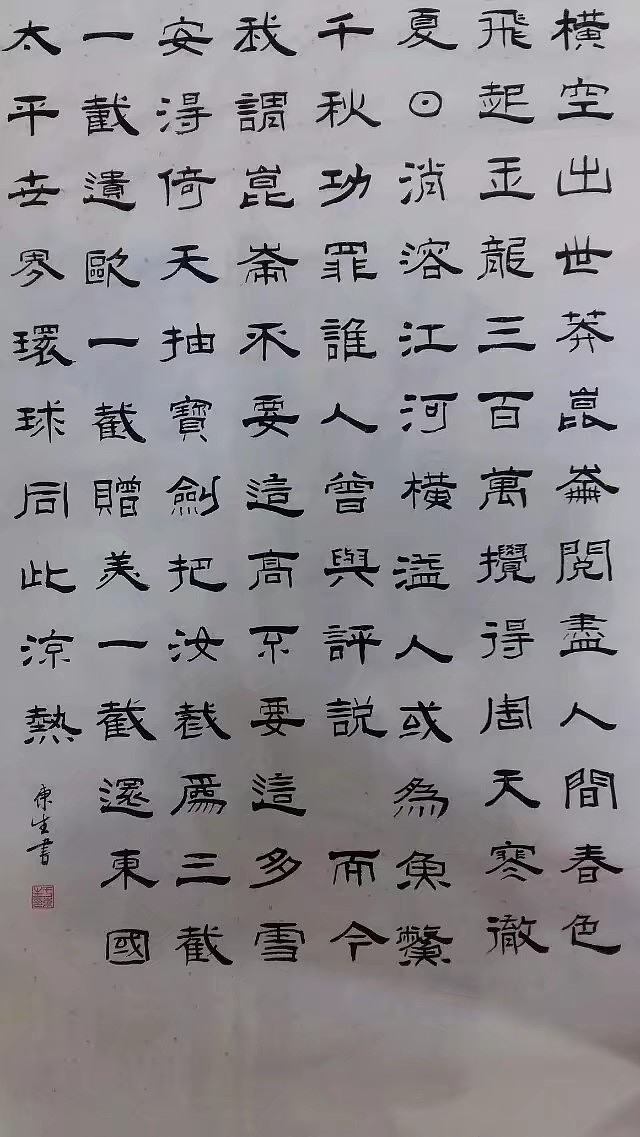 橫空出世莽崑崙閱盡人間春色
飛起玉龍三百萬攪得周天寒徹
夏日消溶江河橫溢人或為魚鱉
千秋功罪誰人曾與評說 而今
我謂崑崙不要這高不要這多雪
安得倚天抽寶劍把汝截爲三截
一截遺歐一截贈美一截還東國
太平世界環球同此涼熱
生書